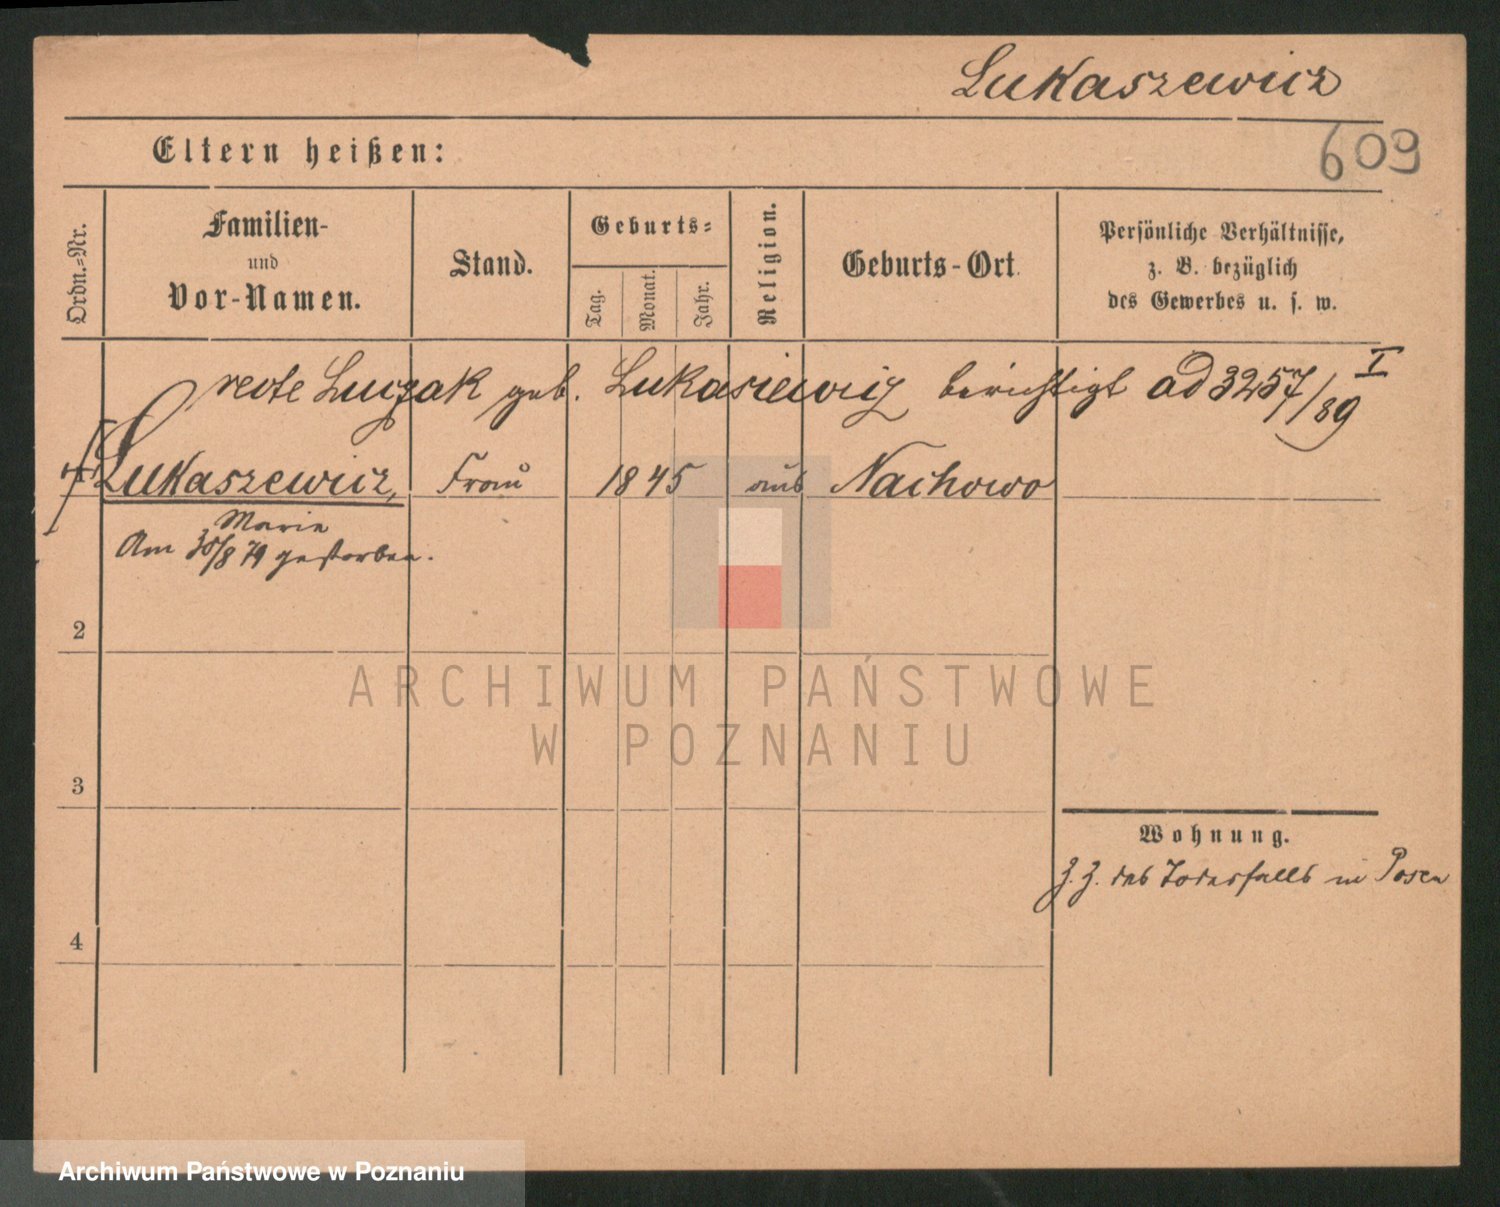 Lukaszewicz
609
Eltern heißen:
Ordn.=Nr.
Familien-
und
Vor-Namen.
Stand.
Geburts=
Tag.
Monat.
Jahr.
Religion.
Geburts-Ort.
Persönliche Verhältnisse,
z. B. bezüglich
des Gewerbes u. s. w.
recte Luczak geb. Lukasiewicz berichtigt ad 3257/89 I
Lukaszewicz, Frau 1845 aus Nachowo
Marie
Am 30/8 79 gestorben.
2
3
4
Wohnung.
z. Z. des Todesfalls in Posen
ARCHIWUM PAŃSTWOWE
W POZNANIU
Archiwum Państwowe w Poznaniu